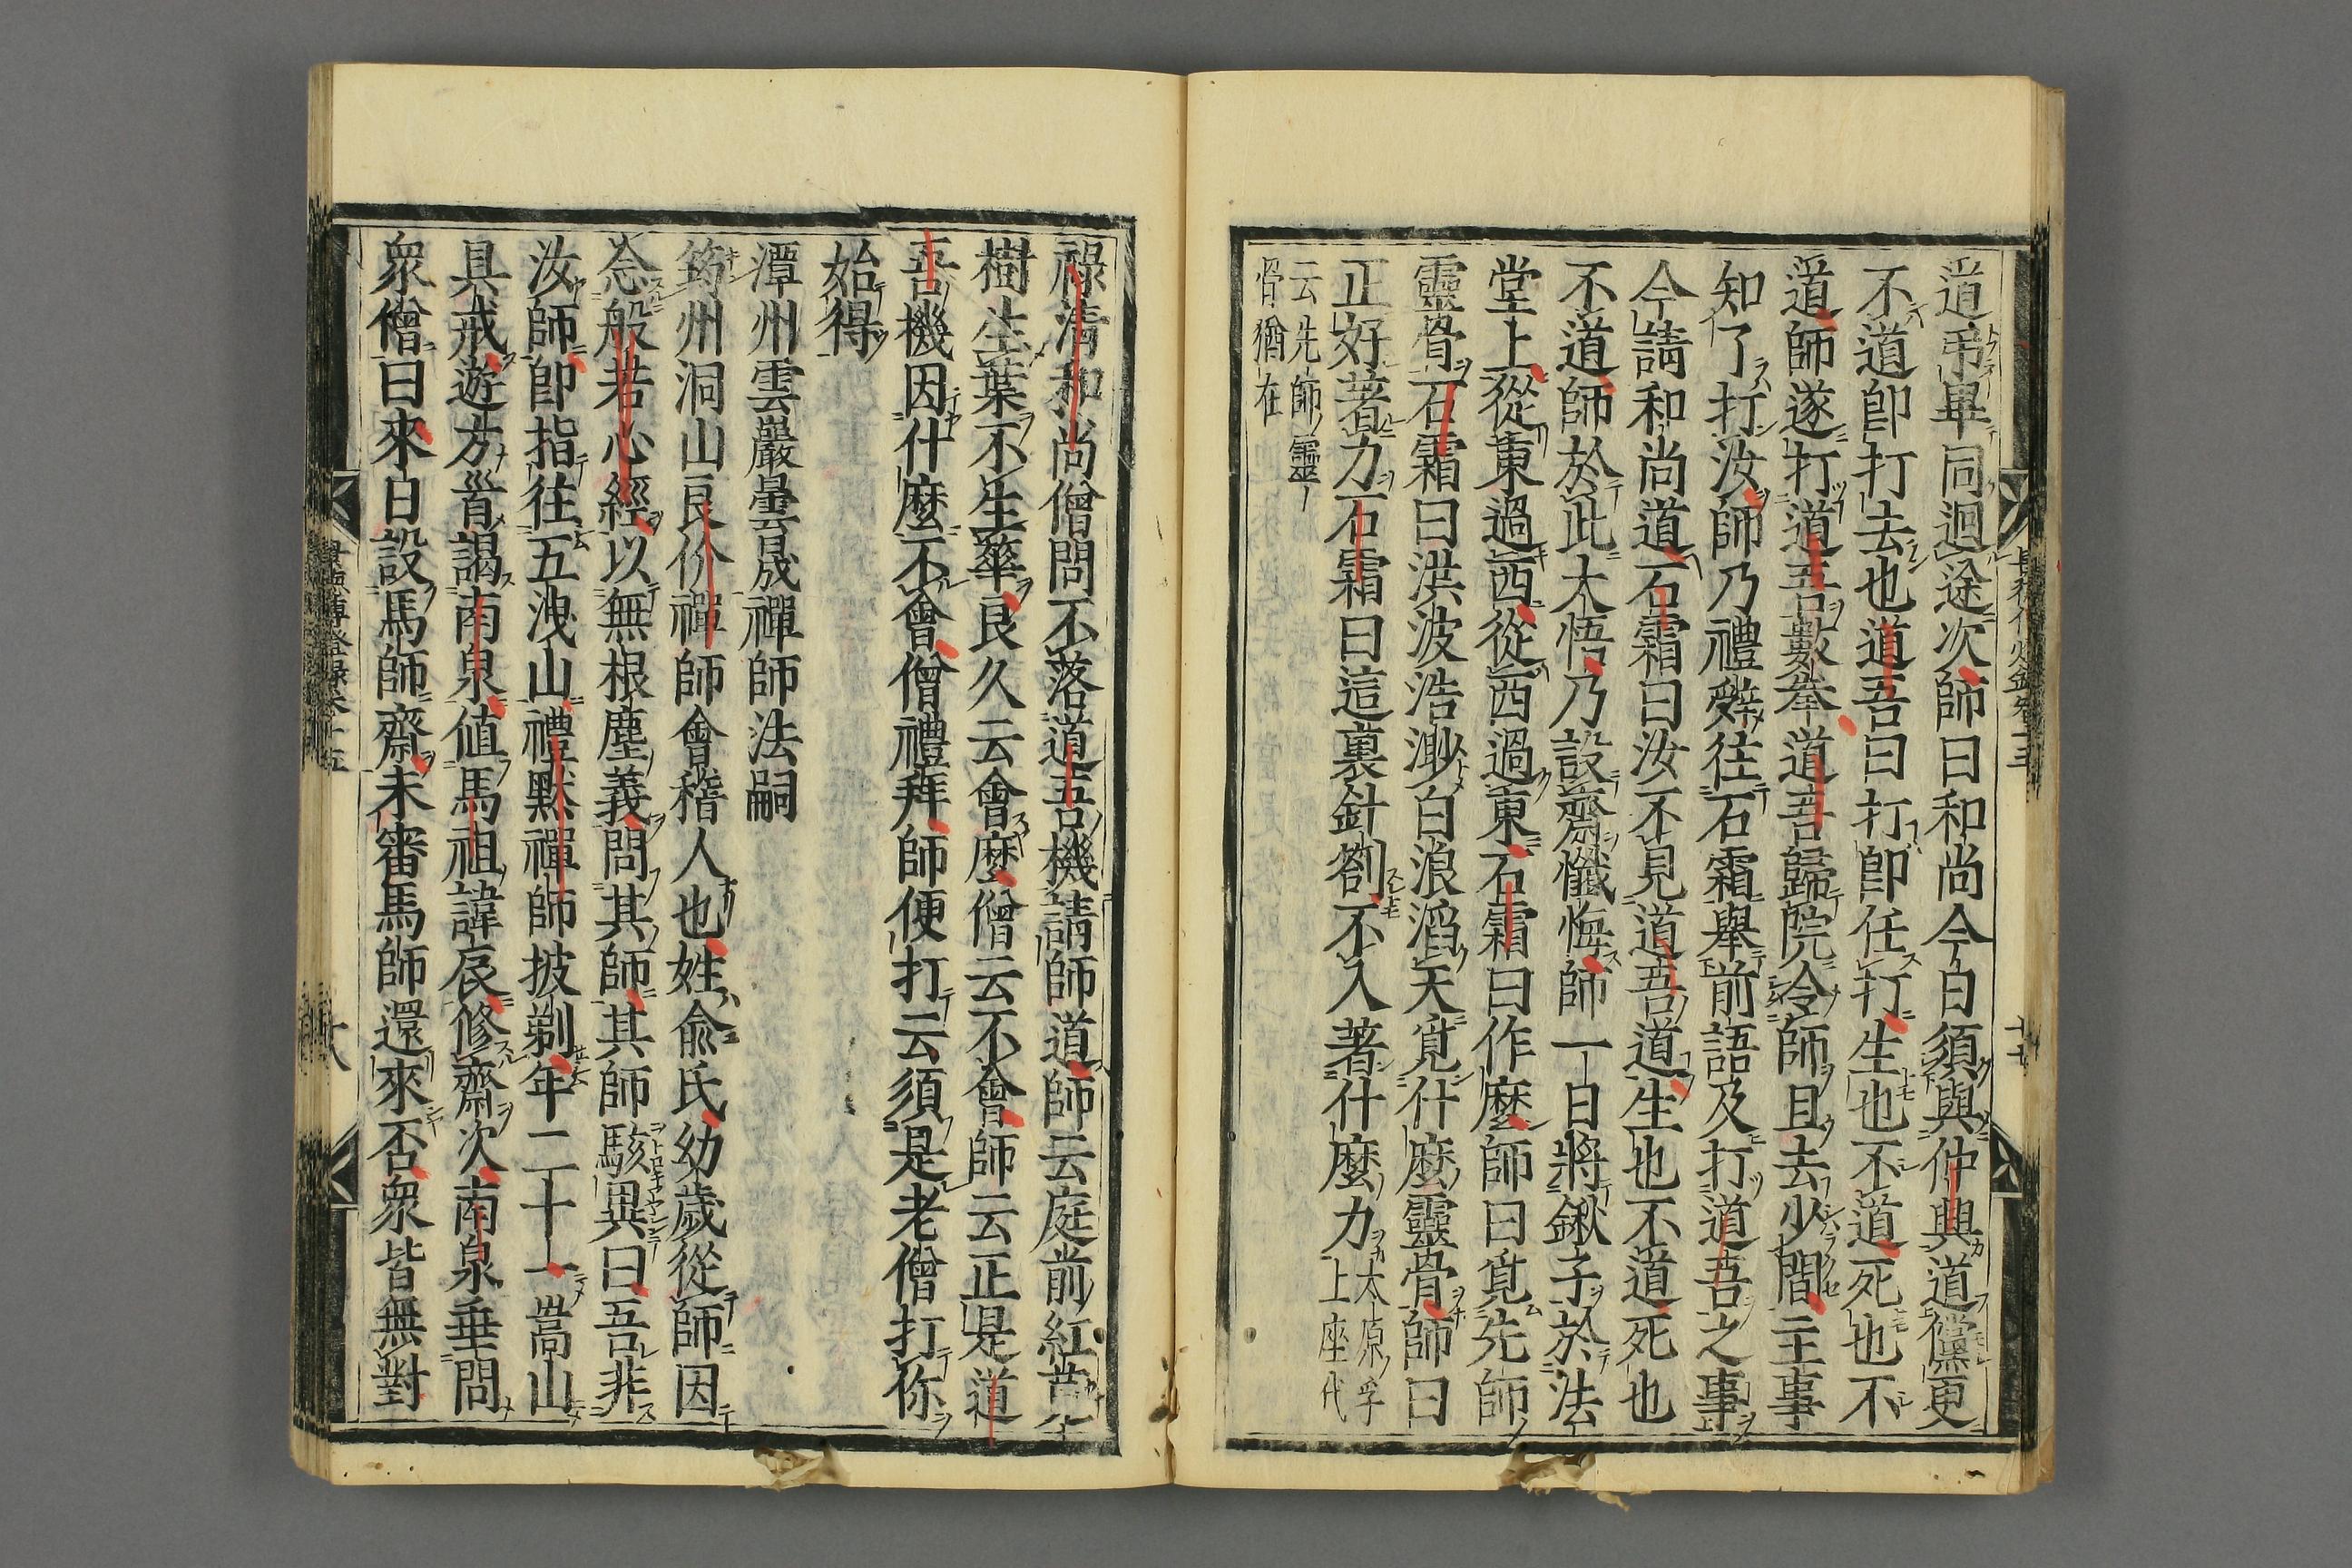 道弔畢同迴途次師曰和尚今日須與仲興道儻更
不道即打去也道吾曰打即任打生也不道死也不
道師遂打道吾數拳道吾歸院令師且去少間主事
知了打汝師乃禮辭往石霜舉前語及打道吾之事
今請和尚道石霜曰汝不見道吾道生也不道死也
不道師於此大悟乃設齋懺悔師一日將鍬子於法
堂上從東過西從西過東石霜曰作麼師曰覓先師
靈骨石霜曰洪波浩渺白浪滔天覓什麼靈骨師曰
正好著力石霜曰這裏針劄不入著什麼力太原孚上座代
云先師靈骨猶在
祿清和尚僧問不落道吾機請師道師云庭前紅莧
樹生葉不生華良久云會麼僧云不會師云正是道
吾機因什麼不會僧禮拜師便打云須是老僧打你
始得
潭州雲巖曇晟禪師法嗣
筠州洞山良价禪師會稽人也姓俞氏幼歲從師因
念般若心經以無根塵義問其師其師駭異曰吾非
汝師即指往五洩山禮默禪師披剃年二十一嵩山
具戒遊方首謁南泉值馬祖諱辰修齋次南泉垂問
眾僧曰來日設馬師齋未審馬師還來否眾皆無對